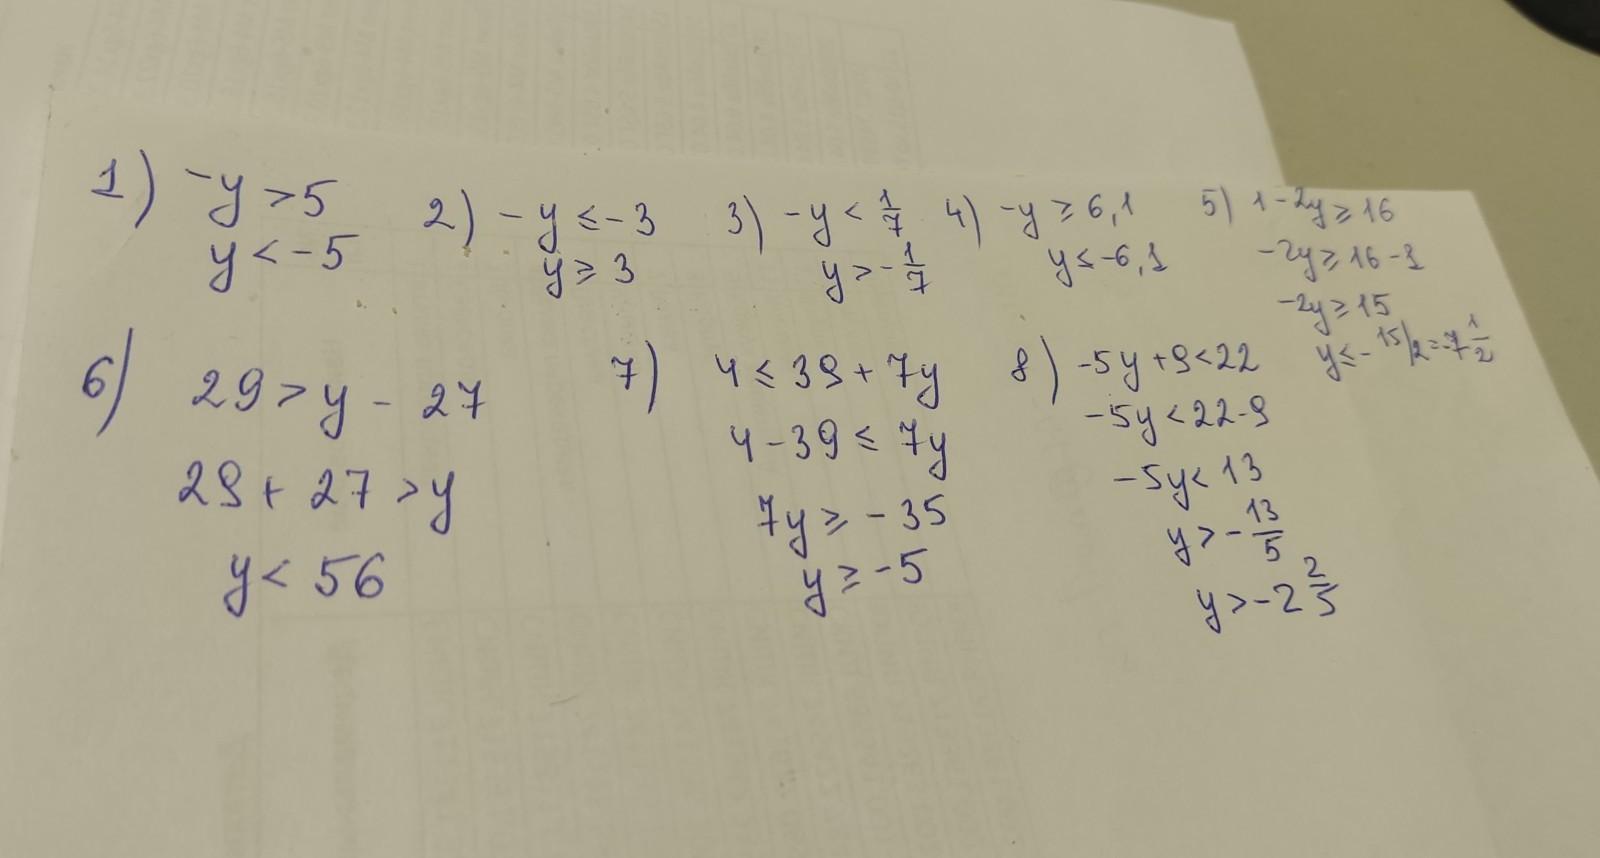 1) -y > 5
y < -5
2) -y ≤ -3
y ≥ 3
3) -y < 1/7
y > -1/7
4) -y ≥ 6,1
y ≤ -6,1
5) 1 - 2y ≥ 16
-2y ≥ 16 - 1
-2y ≥ 15
y ≤ - 15/2 = -7 1/2
6) 29 > y - 27
29 + 27 > y
y < 56
7) 4 ≤ 39 + 7y
4 - 39 ≤ 7y
7y ≥ -35
y ≥ -5
8) -5y + 9 < 22
-5y < 22 - 9
-5y < 13
y > - 13/5
y > -2 2/5